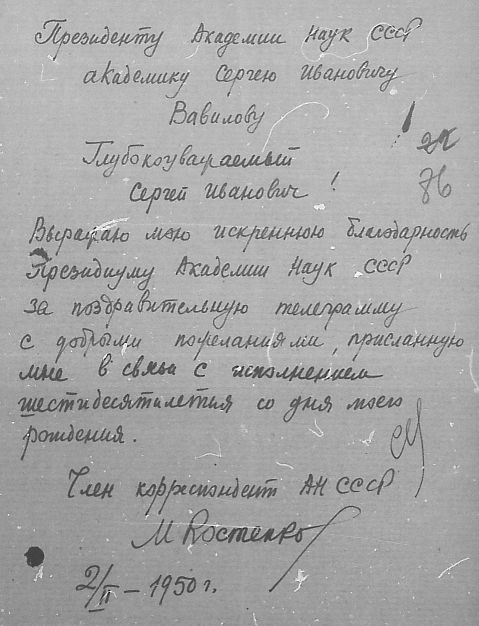 Президенту Академии Наук СССР
академику Сергею Ивановичу
Вавилову
Глубокоуважаемый
Сергей Иванович!
76
Выражаю мою искреннюю благодарность
Президиуму Академии Наук СССР
за поздравительную телеграмму
с добрыми пожеланиями, присланную
мне в связи с исполнением
шестидесятилетия со дня моего
рождения.
Член корреспондент АН СССР
М Костенко
2/II – 1950 г.